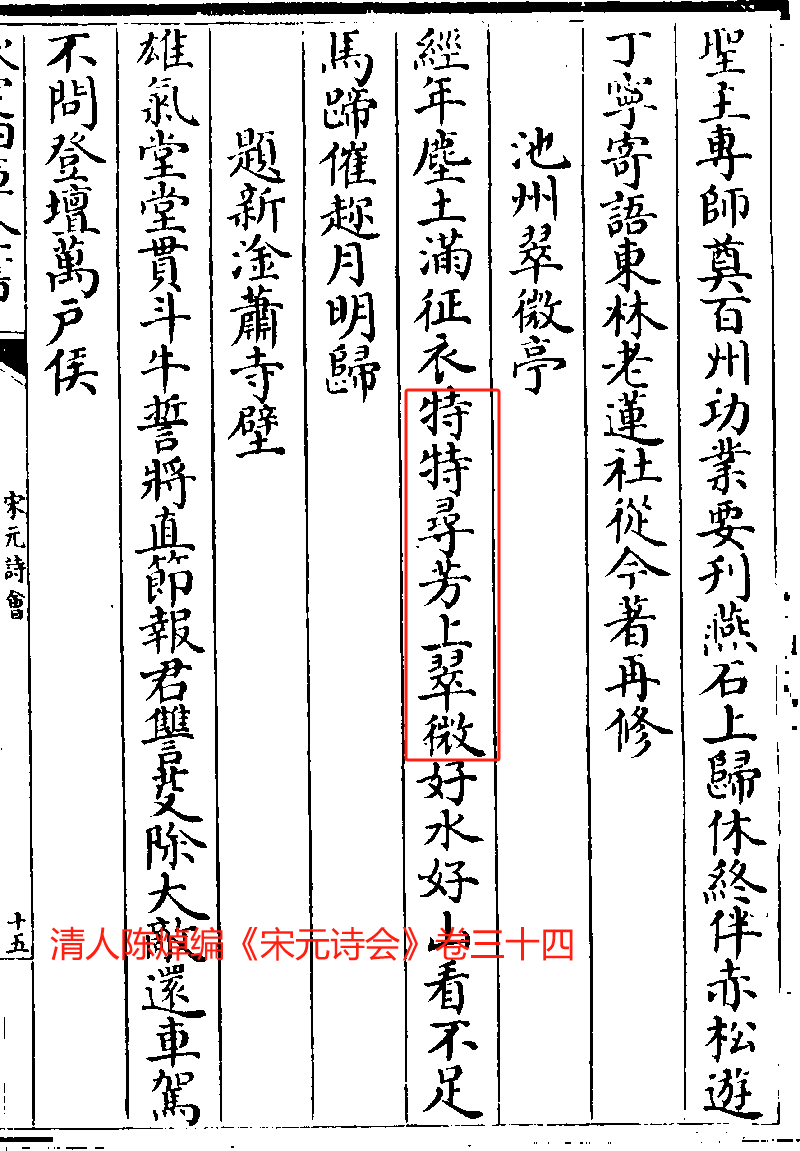 聖主専師奠百州功業要刋燕石上歸休終伴赤松遊
丁寧寄語東林老蓮社從今著再修
池州翠微亭
經年塵土滿征衣特特尋芳上翠微好水好山看不足
馬蹄催趂月明歸
題新淦蕭寺壁
雄氣堂堂貫斗牛誓將直節報君讐芟除大敵還車駕
不問登壇萬戸侯
宋元詩會
十五
清人陈焯编《宋元诗会》卷三十四